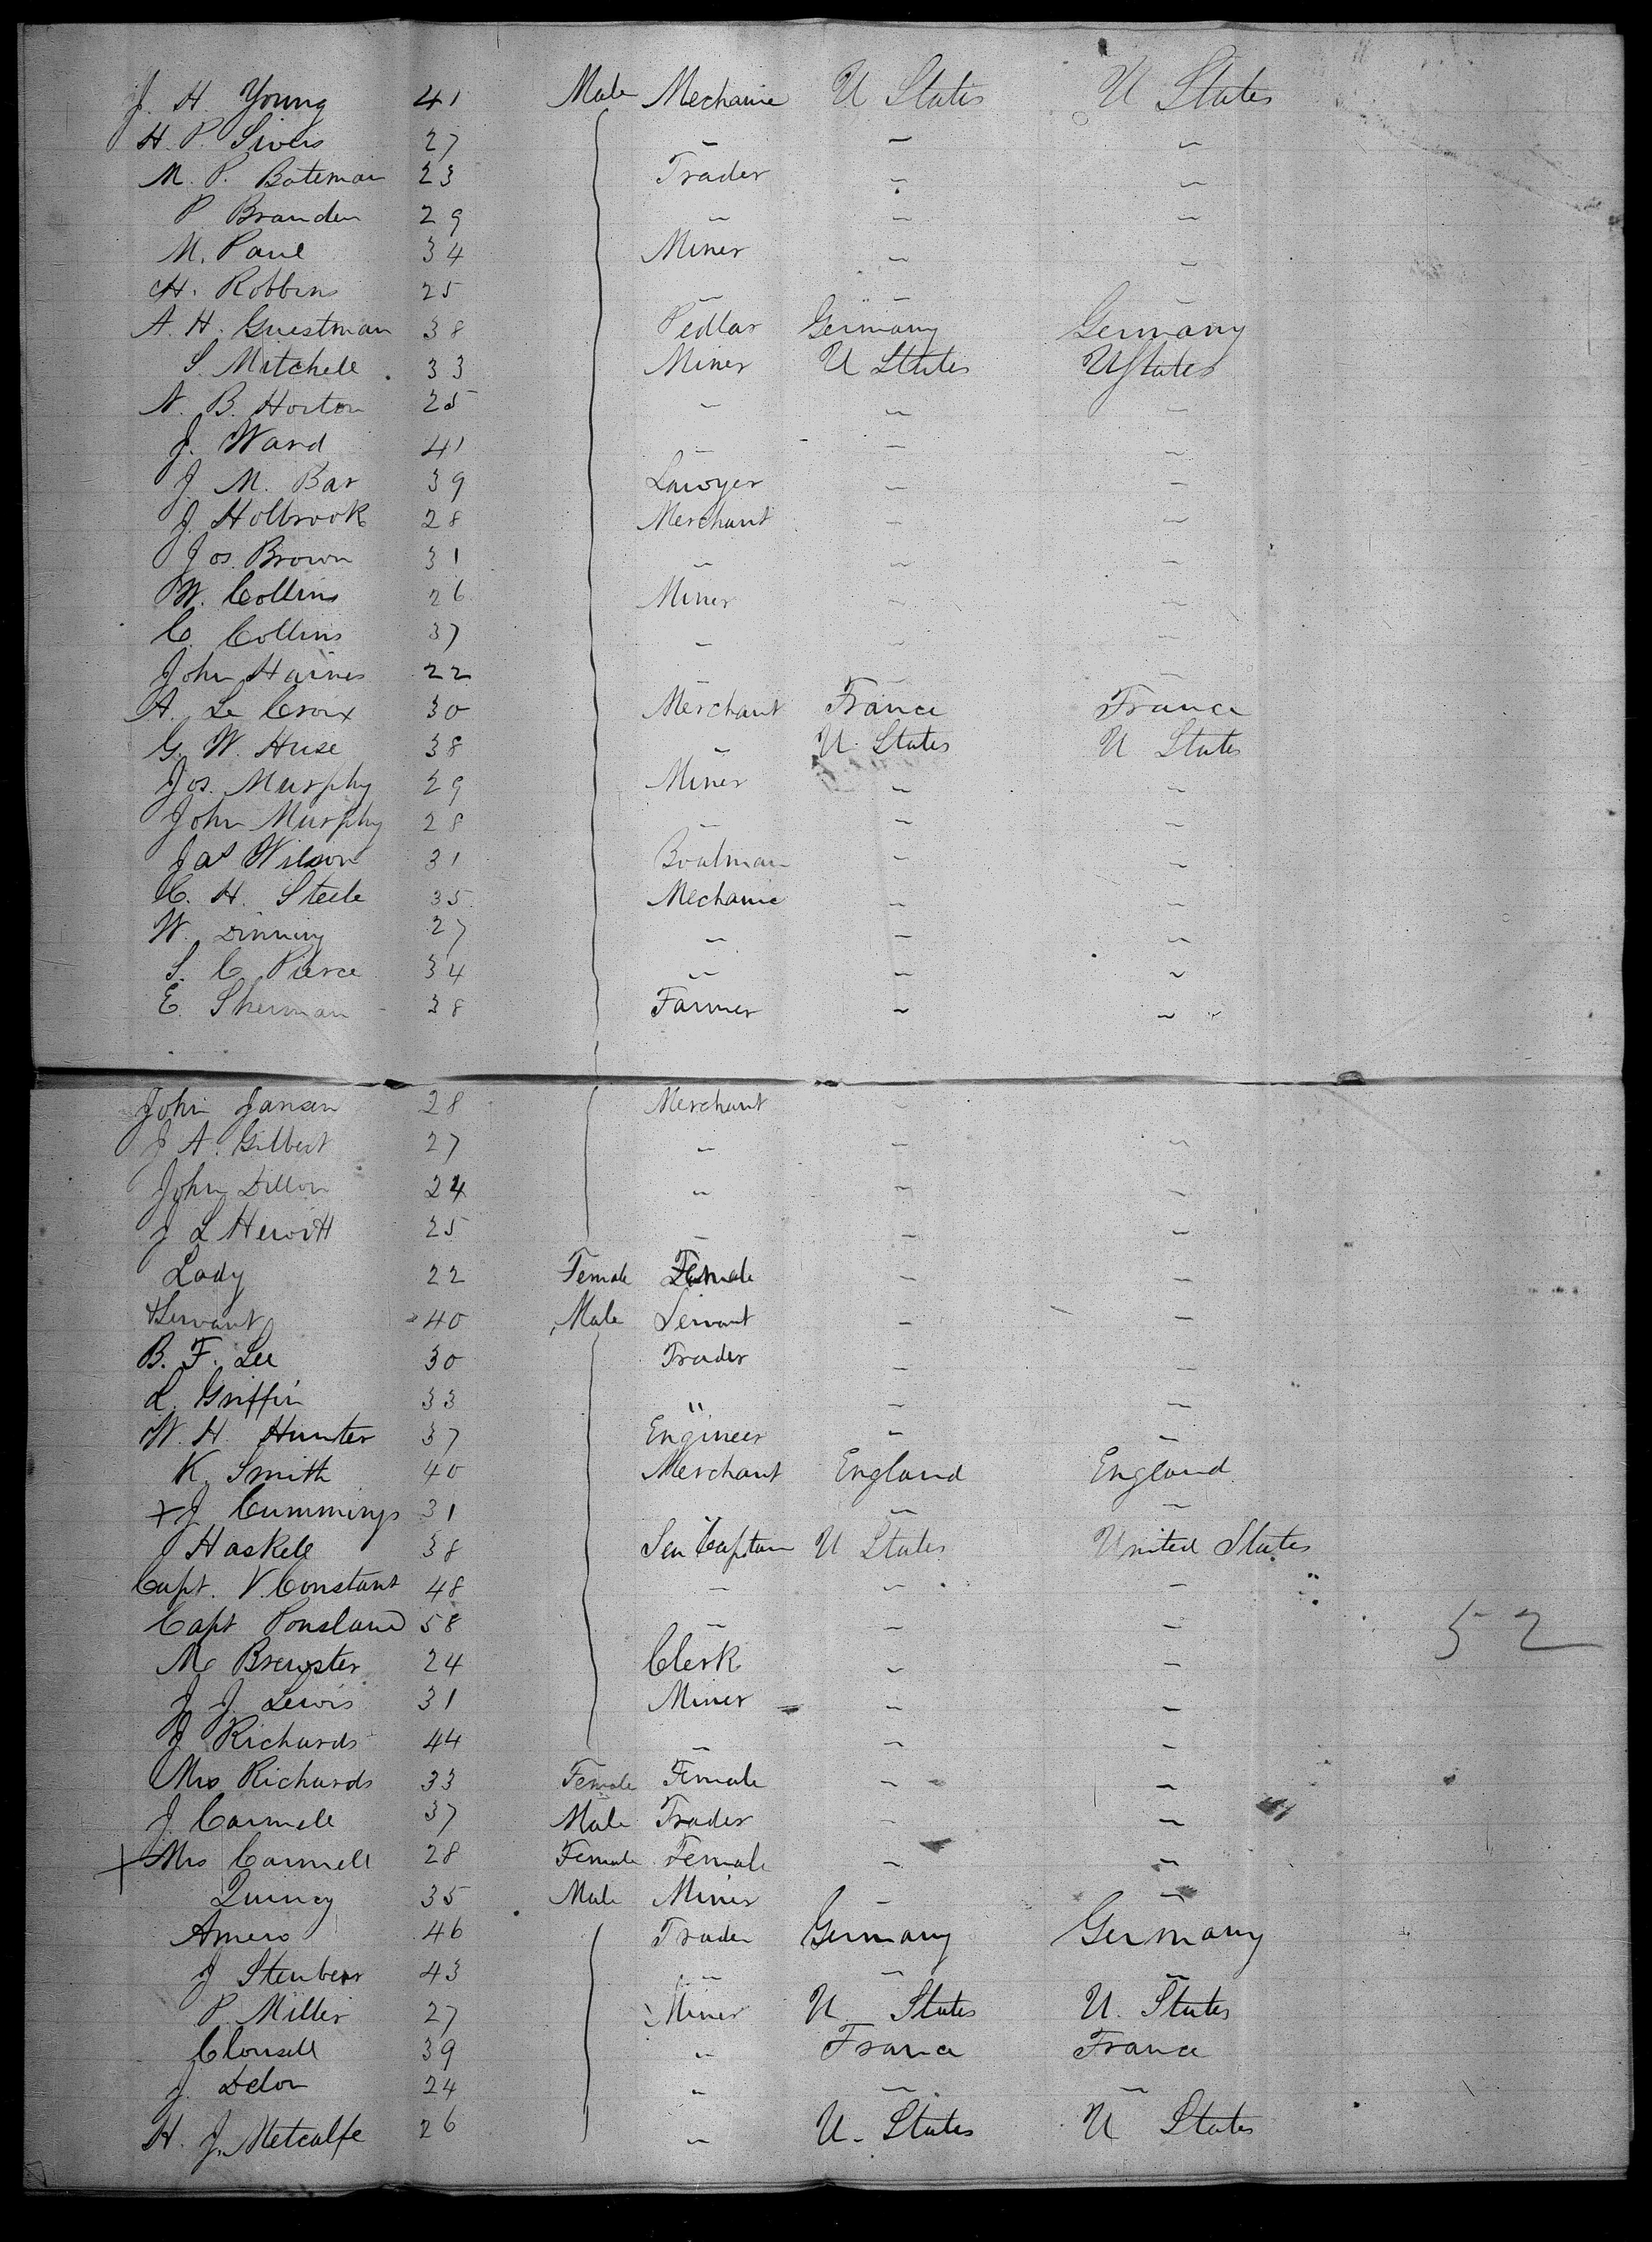 J. H. Young 41 Male Mechanic U States U States
H. P. Sivers 27 " " "
M. P. Bateman 23 Trader " "
P. Branden 29 " " "
M. Paul 34 Miner " "
H. Robbins 25 " " "
A. H. Guestman 38 Pedlar Germany Germany
S. Mitchell 33 Miner U States U States
N. B. Horton 25 " " "
J. Ward 41 " " "
J. M. Bar 39 Lawyer " "
J. Holbrook 28 Merchant " "
Jos. Brown 31 " " "
W. Collins 26 Miner " "
C. Collins 37 " " "
John Haines 22 " " "
A. Le Croix 30 Merchant France France
G. W. Huse 38 " U. States U States
Jos. Murphy 29 Miner " "
John Murphy 28 " " "
Jas Wilson 31 Boatman " "
C. H. Steele 35 Mechanic " "
W. Dinning 27 " " "
S. C. Pierce 34 " " "
E. Sherman 38 Farmer " "
John Jansen 28 Merchant "
J A. Gilbert 27 " " "
John Dillon 24 " " "
J L Hewitt 25 " " "
Lady 22 Female Female " "
Servant 40 Male Servant " "
B. F. Lee 30 Trader " "
L. Griffin 33 " " "
W. H. Hunter 37 Engineer " "
K. Smith 40 Merchant England England
+ J Cummings 31 " " "
Haskell 38 Sea Captain U States United States
Capt. V. Constant 48 " " "
Capt Ponsland 58 " " "
52
Mc Brewster 24 Clerk " "
J. J. Lewis 31 Miner " "
J Richards 44 " " "
Mrs Richards 33 Female Female " "
J. Carmell 37 Male Trader " "
+ Mrs Carmell 28 Female Female " "
Quincy 35 Male Miner " "
Amero 46 Trader Germany Germany
J Stenberr 43 " " "
P. Miller 27 Miner U. States U. States
Clousell 39 " France France
J. Delon 24 " " "
H. J. Metcalfe 26 " U. States U States